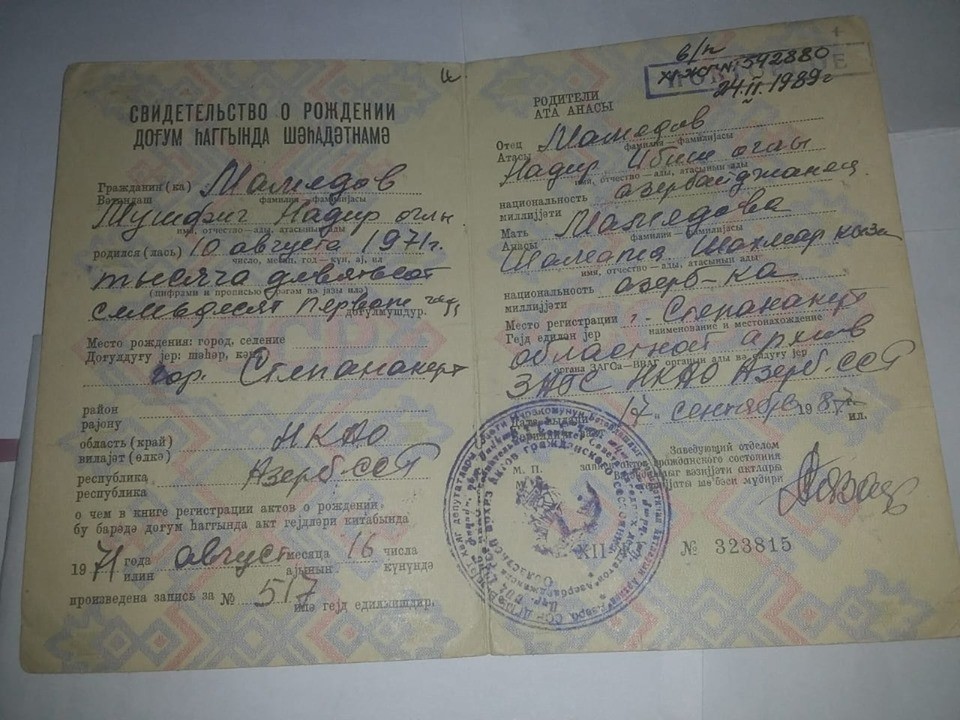 СВИДЕТЕЛЬСТВО О РОЖДЕНИИ
ДОҒУМ ҺАГГЫНДА ШӘҺАДӘТНАМӘ
Гражданин(ка) Мамедов
Вәтәндаш фамилия — фамилијасы
Мушфиг Надир оглы
имя, отчество — ады, атасынын ады
родился (лась) 10 августа 1971г.
число, месяц, год — күн, ај, ил
тысяча девятьсот
(цифрами и прописью — рәгәм вә јазы илә)
семьдесят первого года
доғулмушдур.
Место рождения: город, селение
Доғулдуғу јер: шәһәр, кәнд
гор. Степанакерт
район
рајону
область (край) НКАО
вилајәт (өлкә)
республика Азерб.ССР
республика
о чем в книге регистрации актов о рождении
бу барәдә доғум һаггында акт гејдләри китабында
1971 года август месяца 16 числа
илин ајынын күнүндә
произведена запись за № 517
илә гејд едилмишдир.
в/п
XI-ЖГ № 592880
24.II.1989г
РОДИТЕЛИ
АТА АНАСЫ
Отец Мамедов
Атасы фамилия — фамилијасы
Надир Ибиш оглы
имя, отчество — ады, атасынын ады
национальность азербайджанец
миллијјәти
Мать Мамедова
Анасы фамилия — фамилијасы
Шахмар кызы
имя, отчество — ады, атасынын ады
национальность азерб-ка
миллијјәти
Место регистрации г. Степанакерт
Гејд едилән јер наименование и местонахождение
областной архив
органа ЗАГСа — ВВАГ органын ады вә олдуғу јер
ЗАГС НКАО Азерб.ССР
17 сентября 1987г.
ил.
Дата выдачи
Заведующий отделом
записи актов гражданского состояния
Вәтәндашлыг вәзијјәти актлары
гејдијјаты шө'бәси мүдири
М. П.
XII-ЖГ № 323815